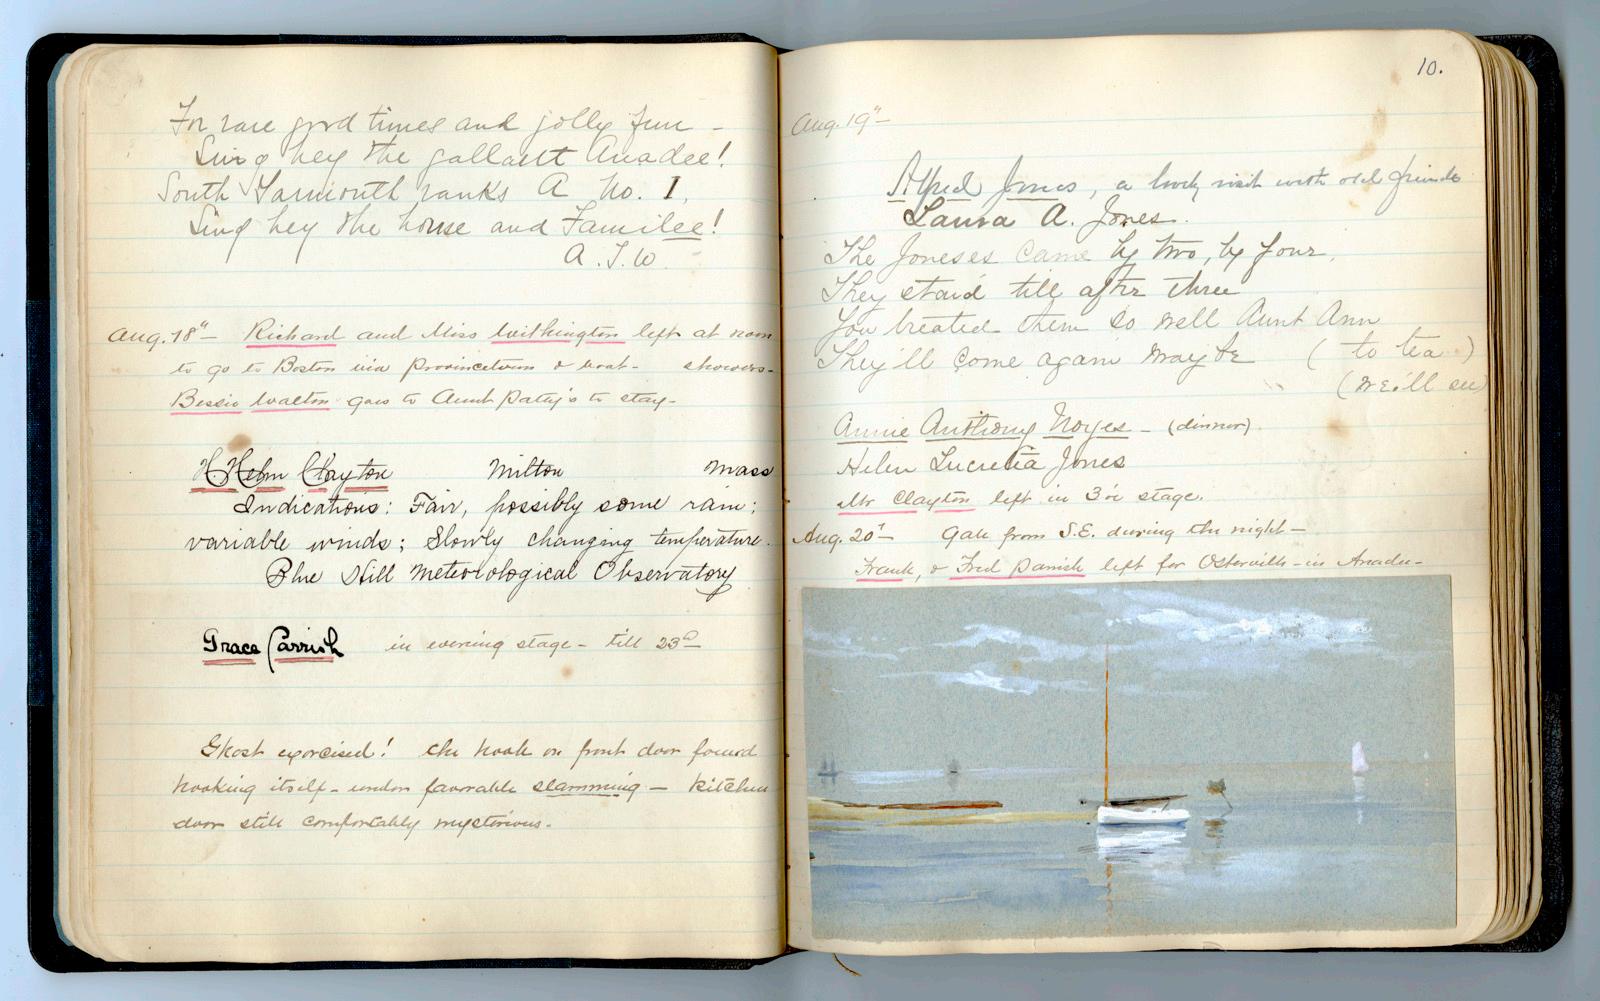 For rare good times and jolly fun -
Sing hey the gallant Anadee!
South Yarmouth ranks A No. 1.
Sing hey the house and Familee!
A. T. W.
Aug. 18" - Richard and Miss Withington left at noon
to go to Boston via Provincetown & boat - showers -
Bessie Walton goes to Aunt Patty's to stay -
H. Helm Clayton Milton Mass
Indications: Fair, possibly some rain;
variable winds; Slowly changing temperature.
Blue Hill Meteorological Observatory
Grace Parrish in evening stage - till 23d
Ghost exorcised! the hook on front door found
hooking itself - under favorable slamming - kitchen
door still comfortably mysterious -
10.
Aug. 19" -
Alfred Jones, a lovely visit with old friends
Laura A. Jones.
The Joneses came by two, by four,
They staid till after three
You treated them so well Aunt Ann
They'll come again maybe (to tea)
(We'll see)
Annie Anthony Noyes - (dinner)
Helen Lucretia Jones
Mr Clayton left in 3 stage.
Aug. 20" - Gale from S.E. during the night -
Frank, & Fred Parrish left for Osterville - in Anadee -